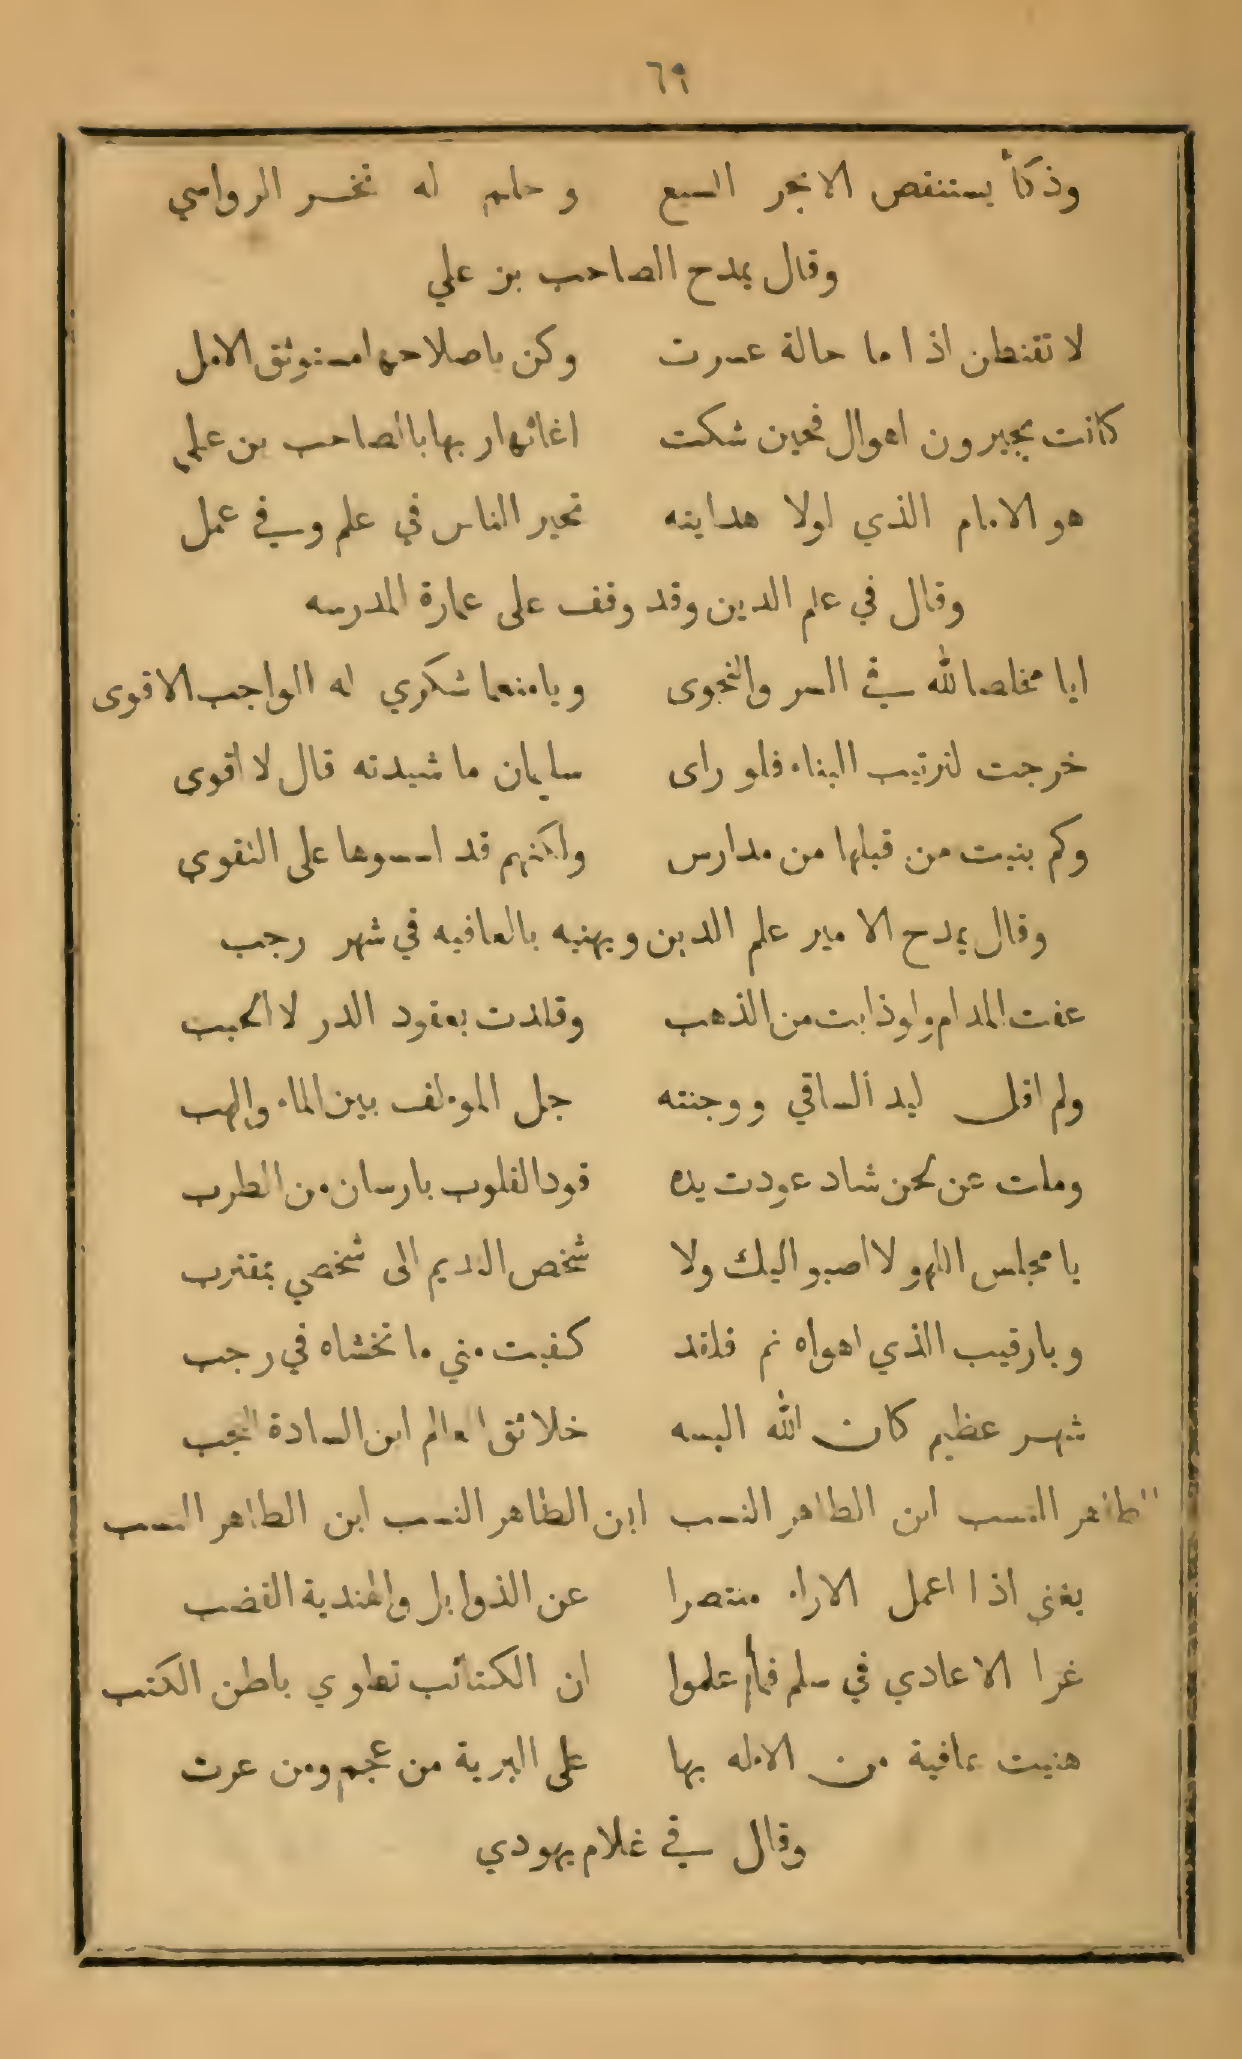 ٦٩
وذكأ يستنقص الابحر السبع وحلم له تخسر الرواسي
وقال يمدح الصاحب بن علي
لا تقنطن اذا ما حالة عسرت وكن باصلاحها مستوثق الامل
كانت بجيرون اهوال فحين شكت اغاثها ربها بالصاحب بن علي
هو الامام الذي لولا هدايته تحير الناس في علم وفي عمل
وقال في علم الدين وقد وقف على عمارة المدرسه
ايا مخلصا لله في السر والنجوى ويا منعما شكري له الواجب الاقوى
خرجت لترتيب البناء فلو راى سليمان ما شيدته قال لا اقوى
وكم بنيت من قبلها من مدارس ولكنهم قد اسسوها على التقوى
وقال يمدح الامير علم الدين ويهنيه بالعافيه في شهر رجب
عفت المدام ولو ذابت من الذهب وقلدت بعقود الدر لا الحبب
ولم اقل ليد الساقي ووجنته جل المولف بين الماء والهب
وملت عن لحن شاد عودت يده قود القلوب بارسان من الطرب
يا مجلس اللهو لا اصبو اليك ولا شخص النديم الى شخصي بمقترب
ويا رقيب الذي اهواه نم فلقد كفيت مني ما تخشاه في رجب
شهر عظيم كان الله البسه خلائق العالم ابن السادة النجب
الطاهر النسب ابن الطاهر النسب ابن الطاهر النسب ابن الطاهر النسب
يغني اذا اعمل الاراء منتصرا عن الذوابل والهندية القضب
غزا الاعادي في سلم فما علموا ان الكتائب تطوي باطن الكتب
هنيت عافية من الاله بها على البرية من عجم ومن عرب
وقال في غلام يهودي